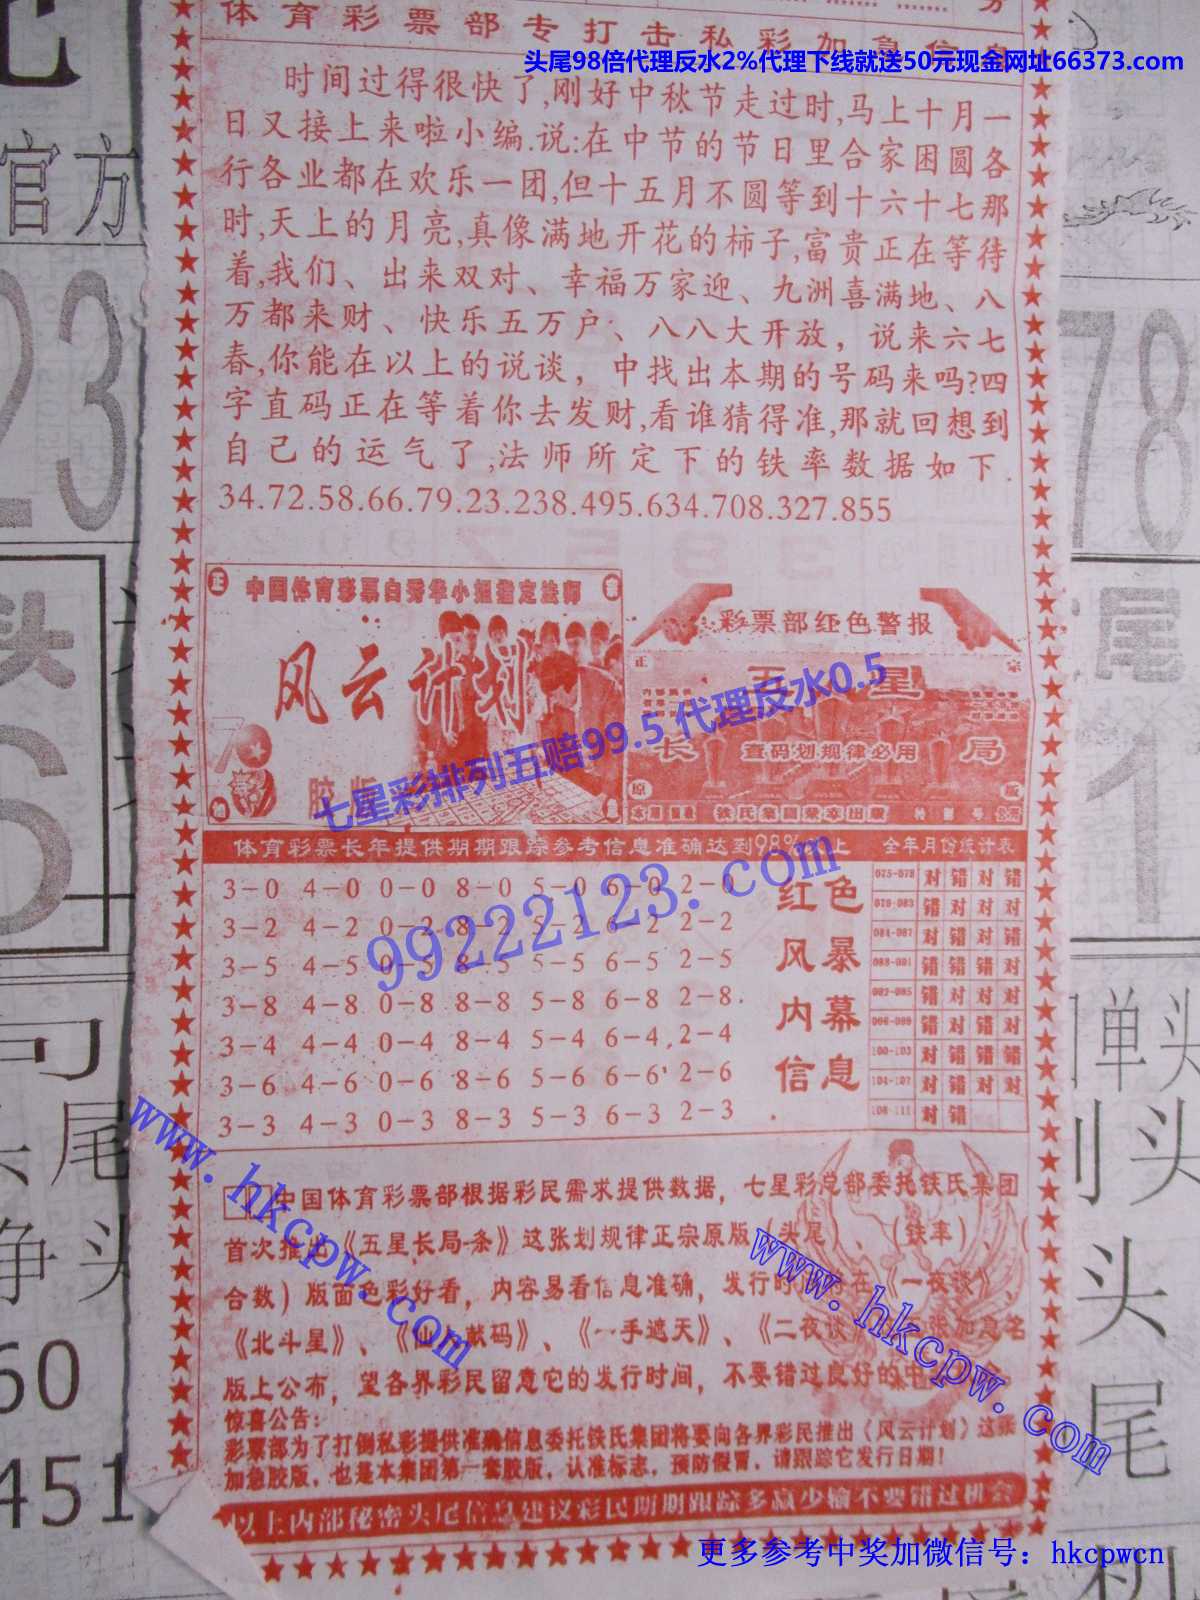 体育彩票部专打击私彩加急信息
头尾98倍代理反水2%代理下线就送50元现金网址66373.com
时间过得很快了,刚好中秋节走过时,马上十月一
日又接上来啦小编.说:在中节的节日里合家困圆各
行各业都在欢乐一团,但十五月不圆等到十六十七那
时,天上的月亮,真像满地开花的柿子,富贵正在等待
着,我们、出来双对、幸福万家迎、九洲喜满地、八
万都来财、快乐五万户、八八大开放，说来六七
春,你能在以上的说谈，中找出本期的号码来吗?四
字直码正在等着你去发财,看谁猜得准,那就回想到
自己的运气了,法师所定下的铁率数据如下.
34.72.58.66.79.23.238.495.634.708.327.855
中国体育彩票白秀华小姐指定法师
风云计划
胶版
彩票部红色警报
正 宗
五星
长 局
查码划规律必用
原 版
铁氏集团荣幸出版
七星彩排列五赔99.5 代理反水0.5
体育彩票长年提供期期跟踪参考信息准确达到98%以上 全年月份统计表
99222123.com
3-0 4-0 0-0 8-0 5-0 6-0 2-0
3-2 4-2 0-2 8-2 5-2 6-2 2-2
3-5 4-5 0-5 8-5 5-5 6-5 2-5
3-8 4-8 0-8 8-8 5-8 6-8 2-8
3-4 4-4 0-4 8-4 5-4 6-4 2-4
3-6 4-6 0-6 8-6 5-6 6-6 2-6
3-3 4-3 0-3 8-3 5-3 6-3 2-3
红色
风暴
内幕
信息
075-078 对 错 对 错
079-083 错 对 对 对
084-087 对 错 对 错
088-091 错 错 错 对
092-095 错 对 对 对
096-099 错 对 对 错
100-103 对 错 错 错
104-107 对 错 对 对
108-111 对 错
中国体育彩票部根据彩民需求提供数据，七星彩总部委托铁氏集团
首次推出《五星长局-条》这张划规律正宗原版（头尾）、（铁率）、（
合数）版面色彩好看，内容易看信息准确，发行时在《一夜谈》、
《北斗星》、《仙献码》、《一手遮天》、《二夜谈》加急名
版上公布，望各界彩民留意它的发行时间，不要错过良好的中
惊喜公告：
彩票部为了打倒私彩提供准确信息委托铁氏集团将要向各界彩民推出《风云计划》这张
加急胶版，也是本集团第一套胶版，认准标志，预防假冒，请跟踪它发行日期！
以上内部秘密头尾信息建议彩民期期跟踪多赢少输不要错过机会
www.hkcpw.com
www.hkcpw.com
更多参考中奖加微信号：hkcpwcn
官方
23
78
头
尾
6
1
尾
净头
60
451
单头
头
尾